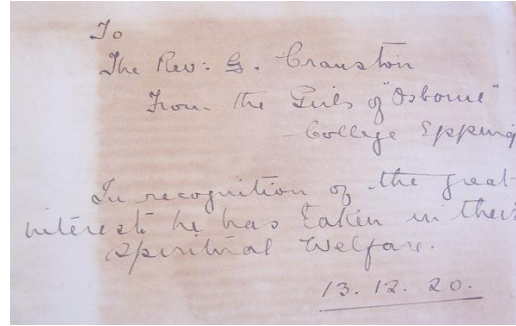 To
The Rev: G. Cranston
From the Girls of "Osborne"
College Epping
In recognition of the great
interest he has taken in their
Spiritual Welfare.
13. 12. 20.